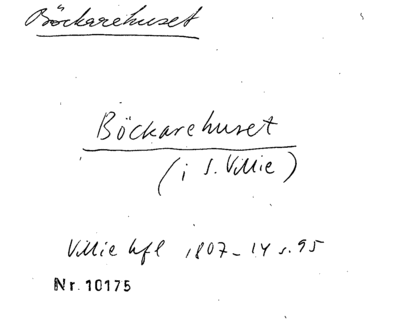 Böckarehuset
Böckarehuset
(i S. Villie)
Villie hfl 1807-14 s. 95
Nr. 10175